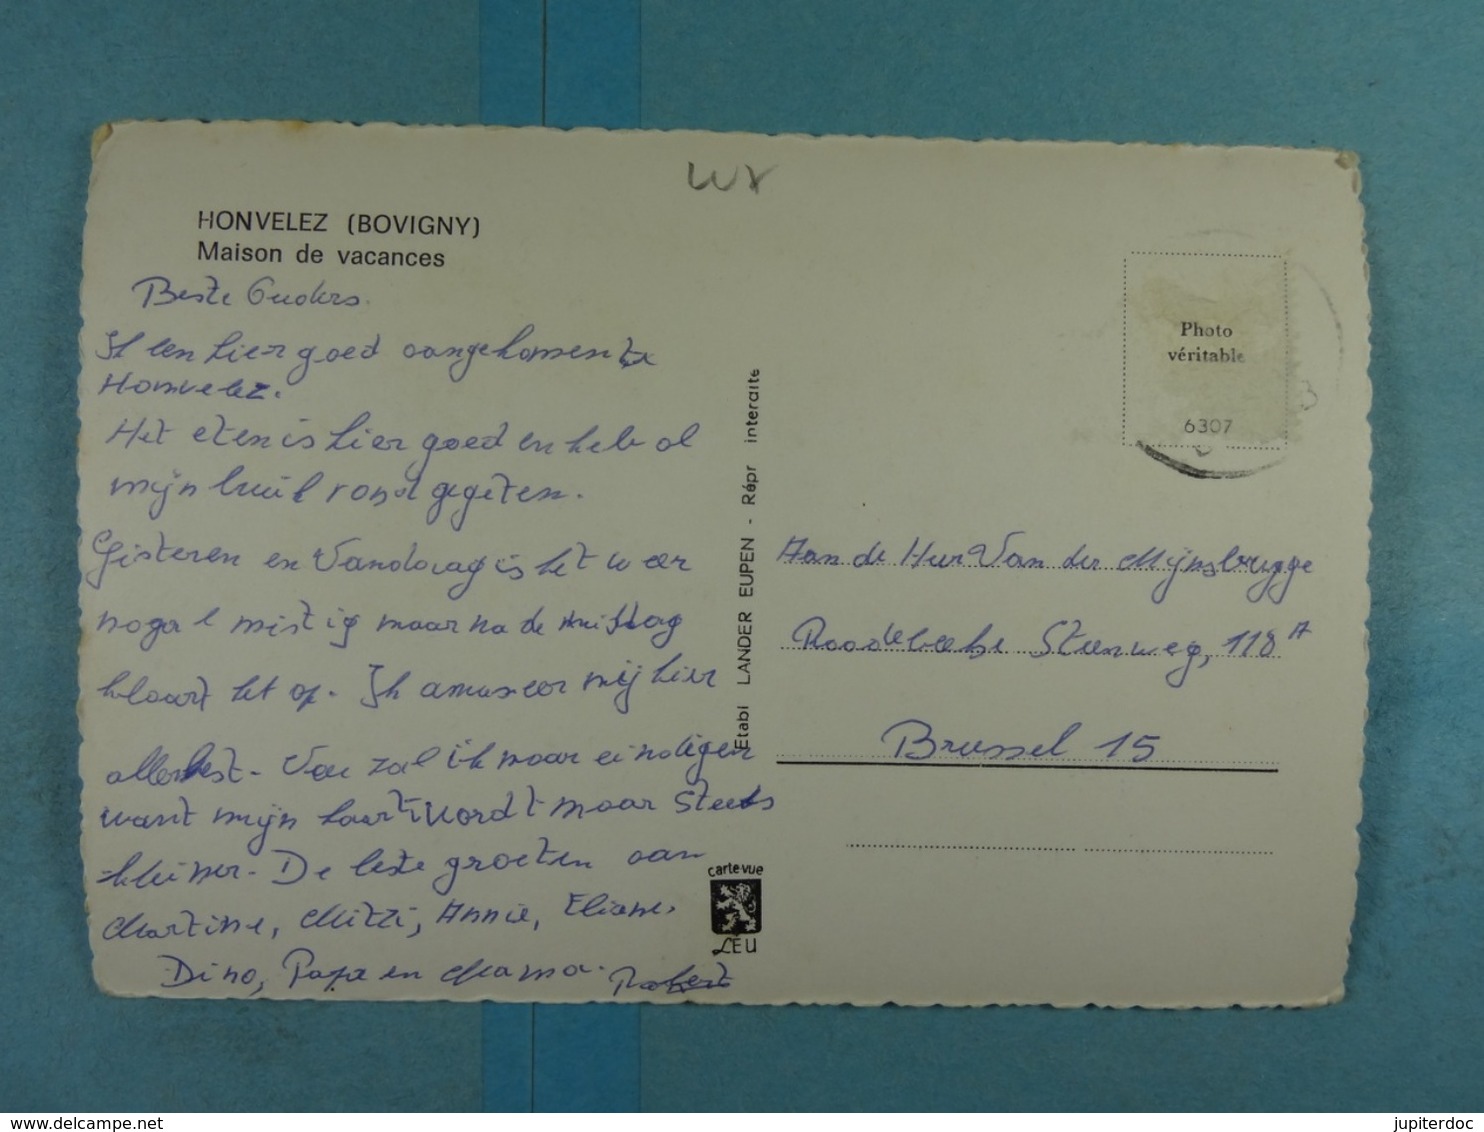 LUX
HONVELEZ (BOVIGNY)
Maison de vacances
Beste Ouders.
Ik ben hier goed aangekomen te
Honvelez.
Het eten is hier goed en heb al
mijn buik rond gegeten.
Gisteren en Vandaag is het weer
nogal mistig maar na de middag
klaart het op. Ik amuseer mij hier
allerbest. Van zal ik maar eindigen
want mijn kaart wordt maar steeds
kleiner. De beste groeten aan
Martine, Mitzi, Annie, Eliane,
Dino, Papa en Mama. Robert
Etabl LANDER EUPEN - Répr interdite
carte vue
LEU
Photo
véritable
6307
Aan de Heer Van der Mijnsbrugge
Roodebeeke Steenweg, 118A
Brussel 15
jupiterdoc